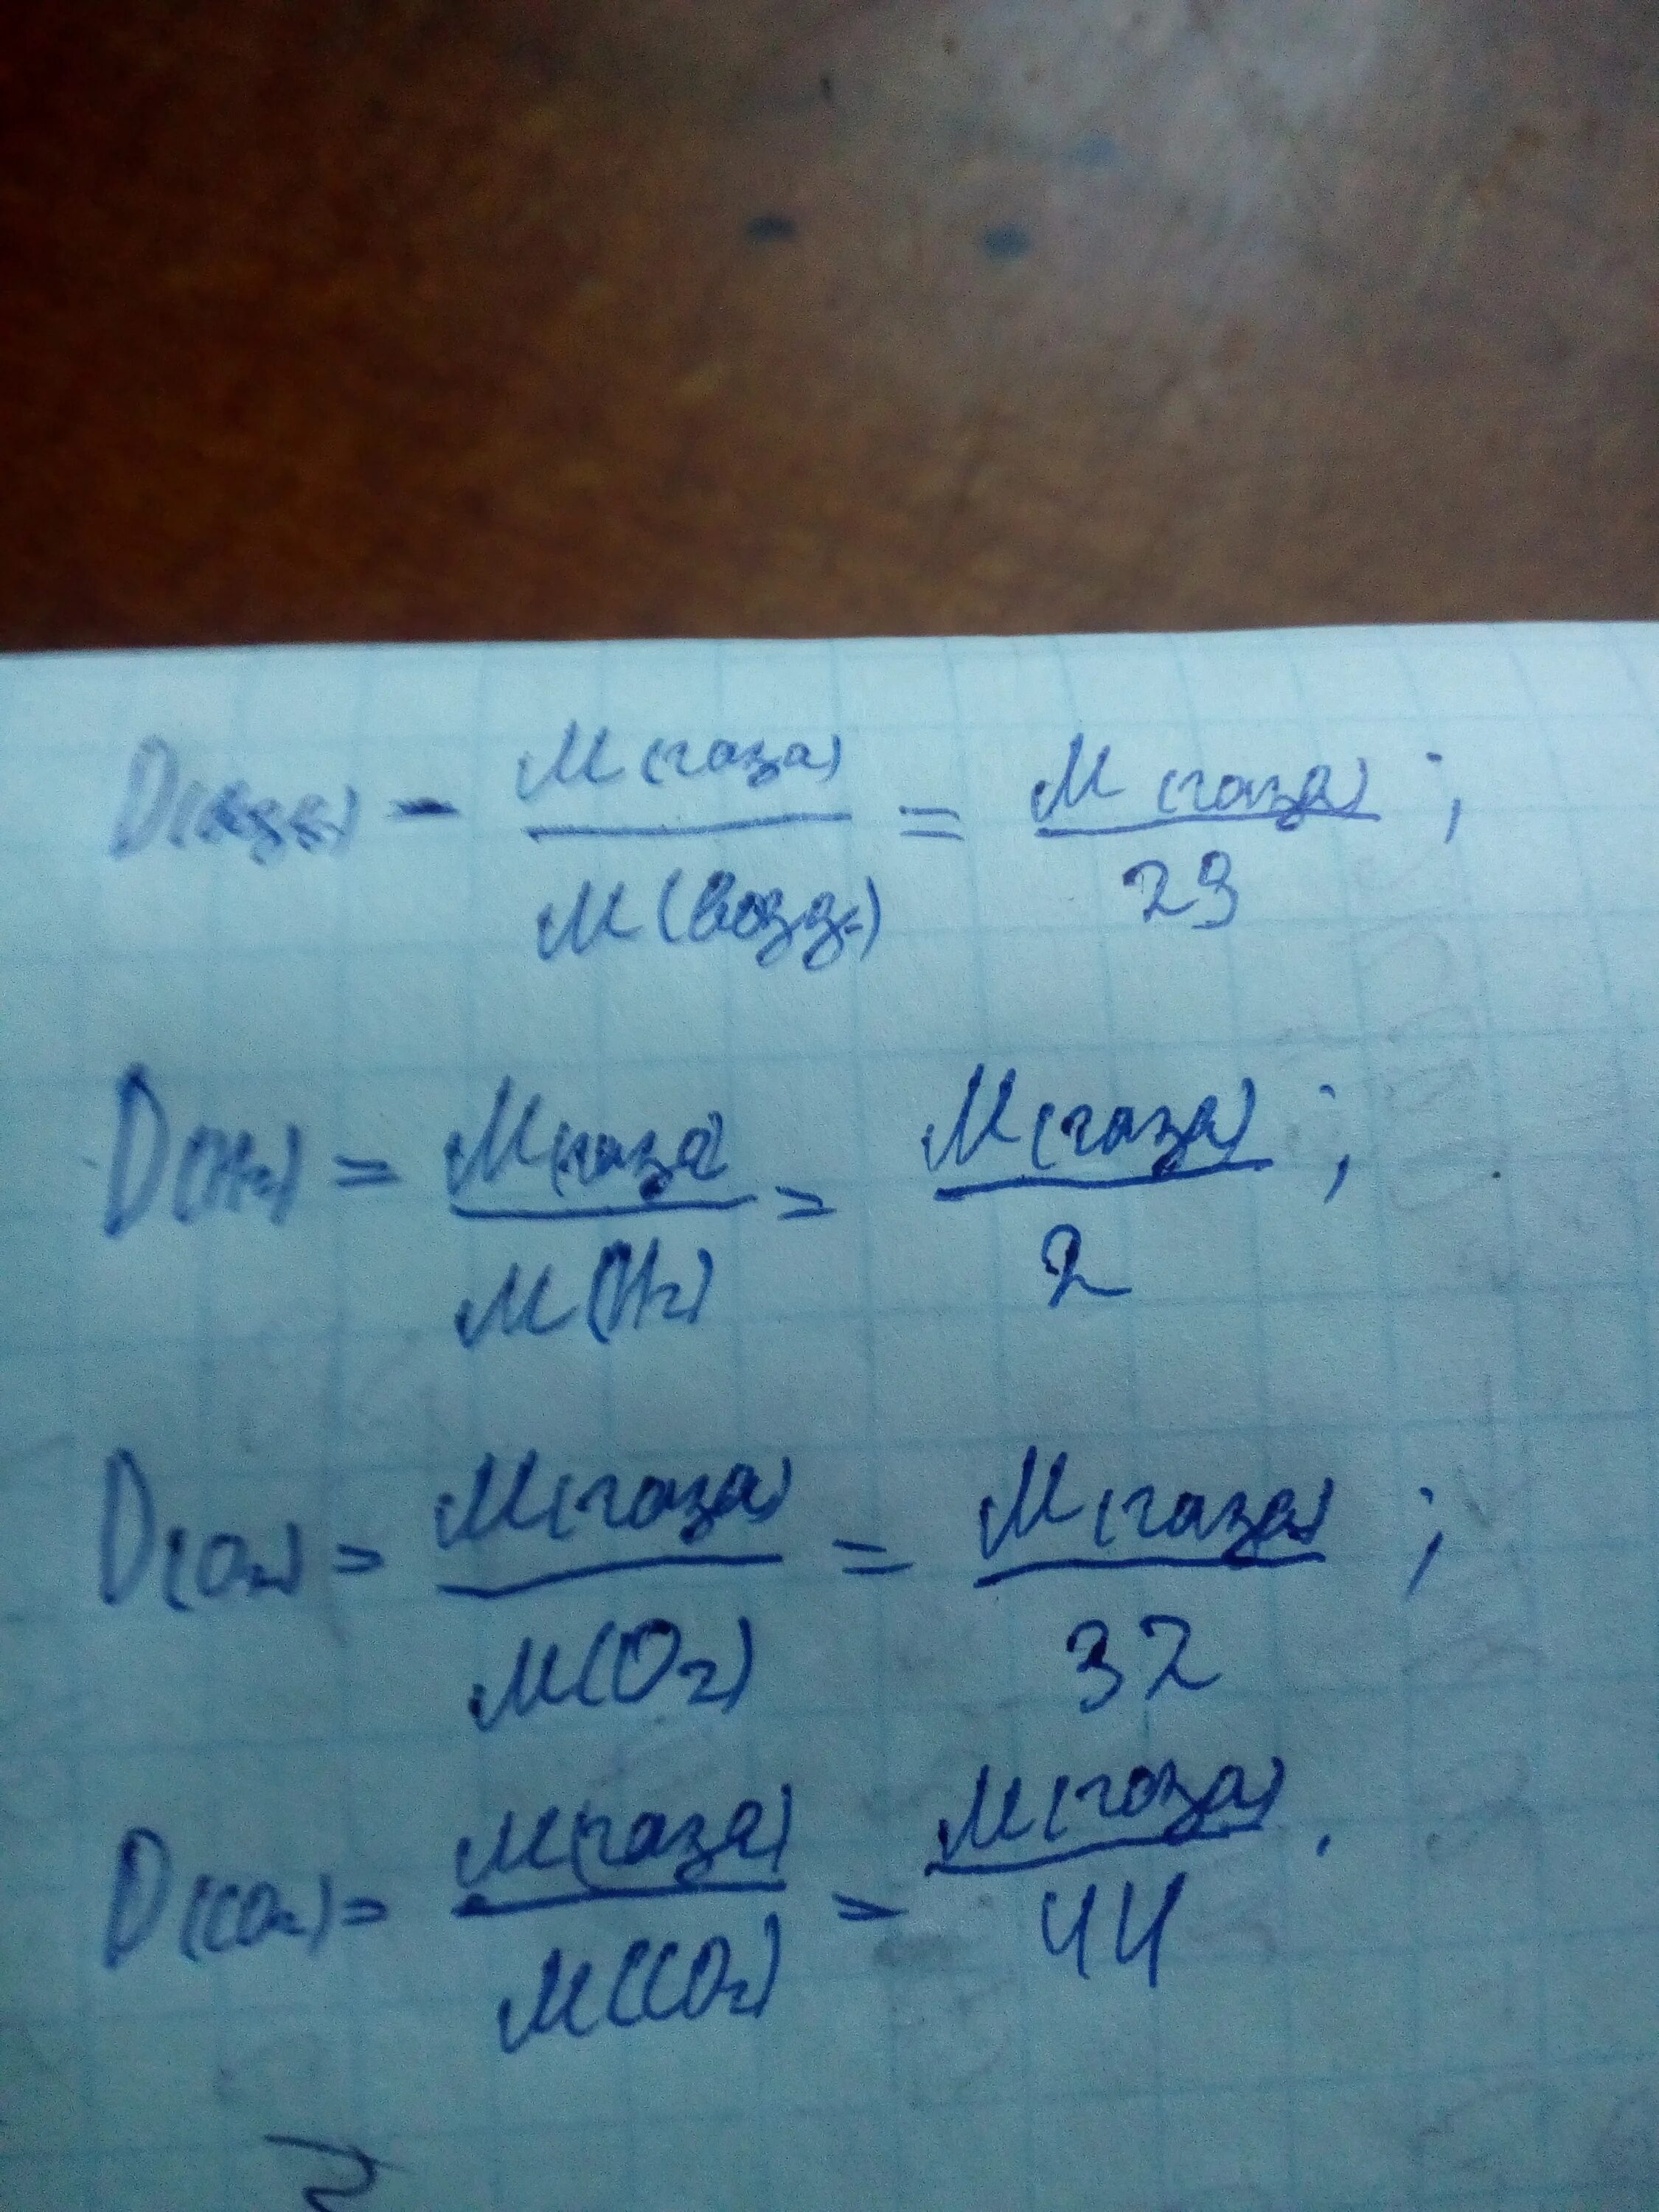 D(возд) = M(газа) / M(возд.) = M(газа) / 29 ;
D(H₂) = M(газа) / M(H₂) = M(газа) / 2 ;
D(O₂) = M(газа) / M(O₂) = M(газа) / 32 ;
D(CO₂) = M(газа) / M(CO₂) = M(газа) / 44 .